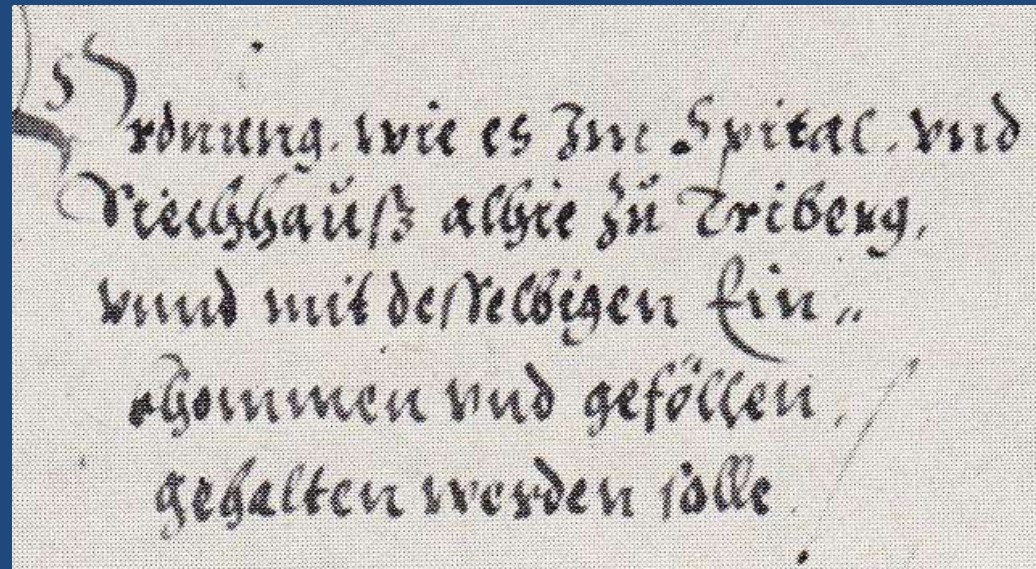 Ordnung. wie es Im Spital. vnd
Siechhauß alhie zu Triberg,
vnnd mit desselbigen Ein„
khommen vnd geföllen,
gehalten werden solle.